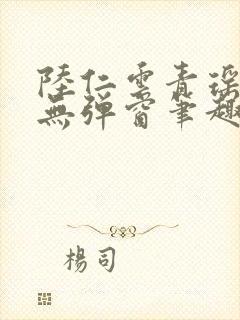 陸仁雲青瑤
無彈窗筆趣
楊司